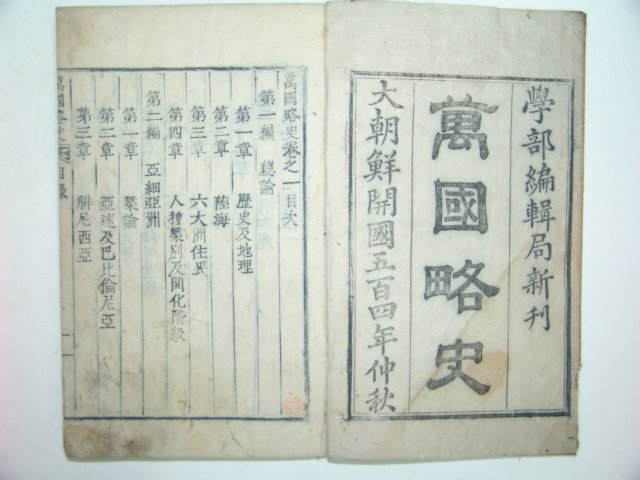 學部編輯局新刊
萬國略史
大朝鮮開國五百四年仲秋
萬國略史卷之一目次
第一編 總論
第一章 歷史及地理
第二章 陸海
第三章 六大洲住民
第四章 人種槩別及開化階級
第二編 亞細亞洲
第一章 槩論
第二章 亞述及巴比倫尼亞
第三章 腓尼西亞
萬國略史 目錄